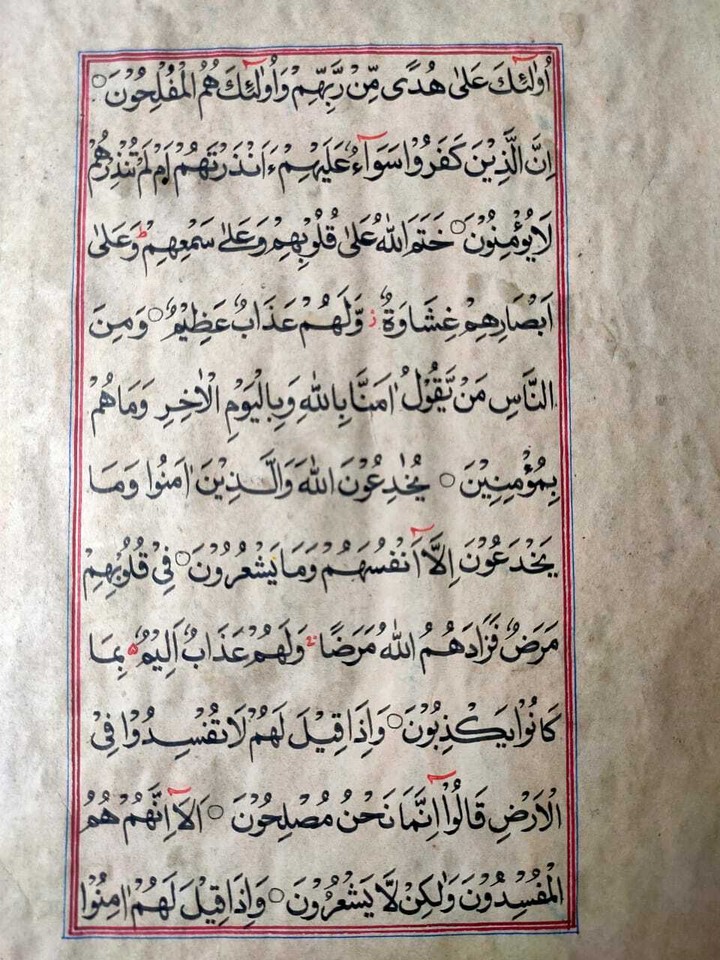 اُولٰٓئِكَ عَلٰى هُدًى مِّنْ رَّبِّهِمْ وَاُولٰٓئِكَ هُمُ الْمُفْلِحُوْنَ ○
اِنَّ الَّذِيْنَ كَفَرُوْا سَوَآءٌ عَلَيْهِمْ ءَاَنْذَرْتَهُمْ اَمْ لَمْ تُنْذِرْهُمْ
لَا يُؤْمِنُوْنَ ○ خَتَمَ اللّٰهُ عَلٰى قُلُوْبِهِمْ وَعَلٰى سَمْعِهِمْ ط وَعَلٰى
اَبْصَارِهِمْ غِشَاوَةٌ ز وَّلَهُمْ عَذَابٌ عَظِيْمٌ ○ وَمِنَ
النَّاسِ مَنْ يَّقُوْلُ اٰمَنَّا بِاللّٰهِ وَبِالْيَوْمِ الْاٰخِرِ وَمَا هُمْ
بِمُؤْمِنِيْنَ ○ يُخٰدِعُوْنَ اللّٰهَ وَالَّذِيْنَ اٰمَنُوْا وَمَا
يَخْدَعُوْنَ اِلَّآ اَنْفُسَهُمْ وَمَا يَشْعُرُوْنَ ○ فِيْ قُلُوْبِهِمْ
مَرَضٌ فَزَادَهُمُ اللّٰهُ مَرَضًا وَلَهُمْ عَذَابٌ اَلِيْمٌ بِمَا
كَانُوْا يَكْذِبُوْنَ ○ وَاِذَا قِيْلَ لَهُمْ لَا تُفْسِدُوْا فِى
الْاَرْضِ قَالُوْٓا اِنَّمَا نَحْنُ مُصْلِحُوْنَ ○ اَلَآ اِنَّهُمْ هُمُ
الْمُفْسِدُوْنَ وَلٰكِنْ لَّا يَشْعُرُوْنَ ○ وَاِذَا قِيْلَ لَهُمْ اٰمِنُوْا